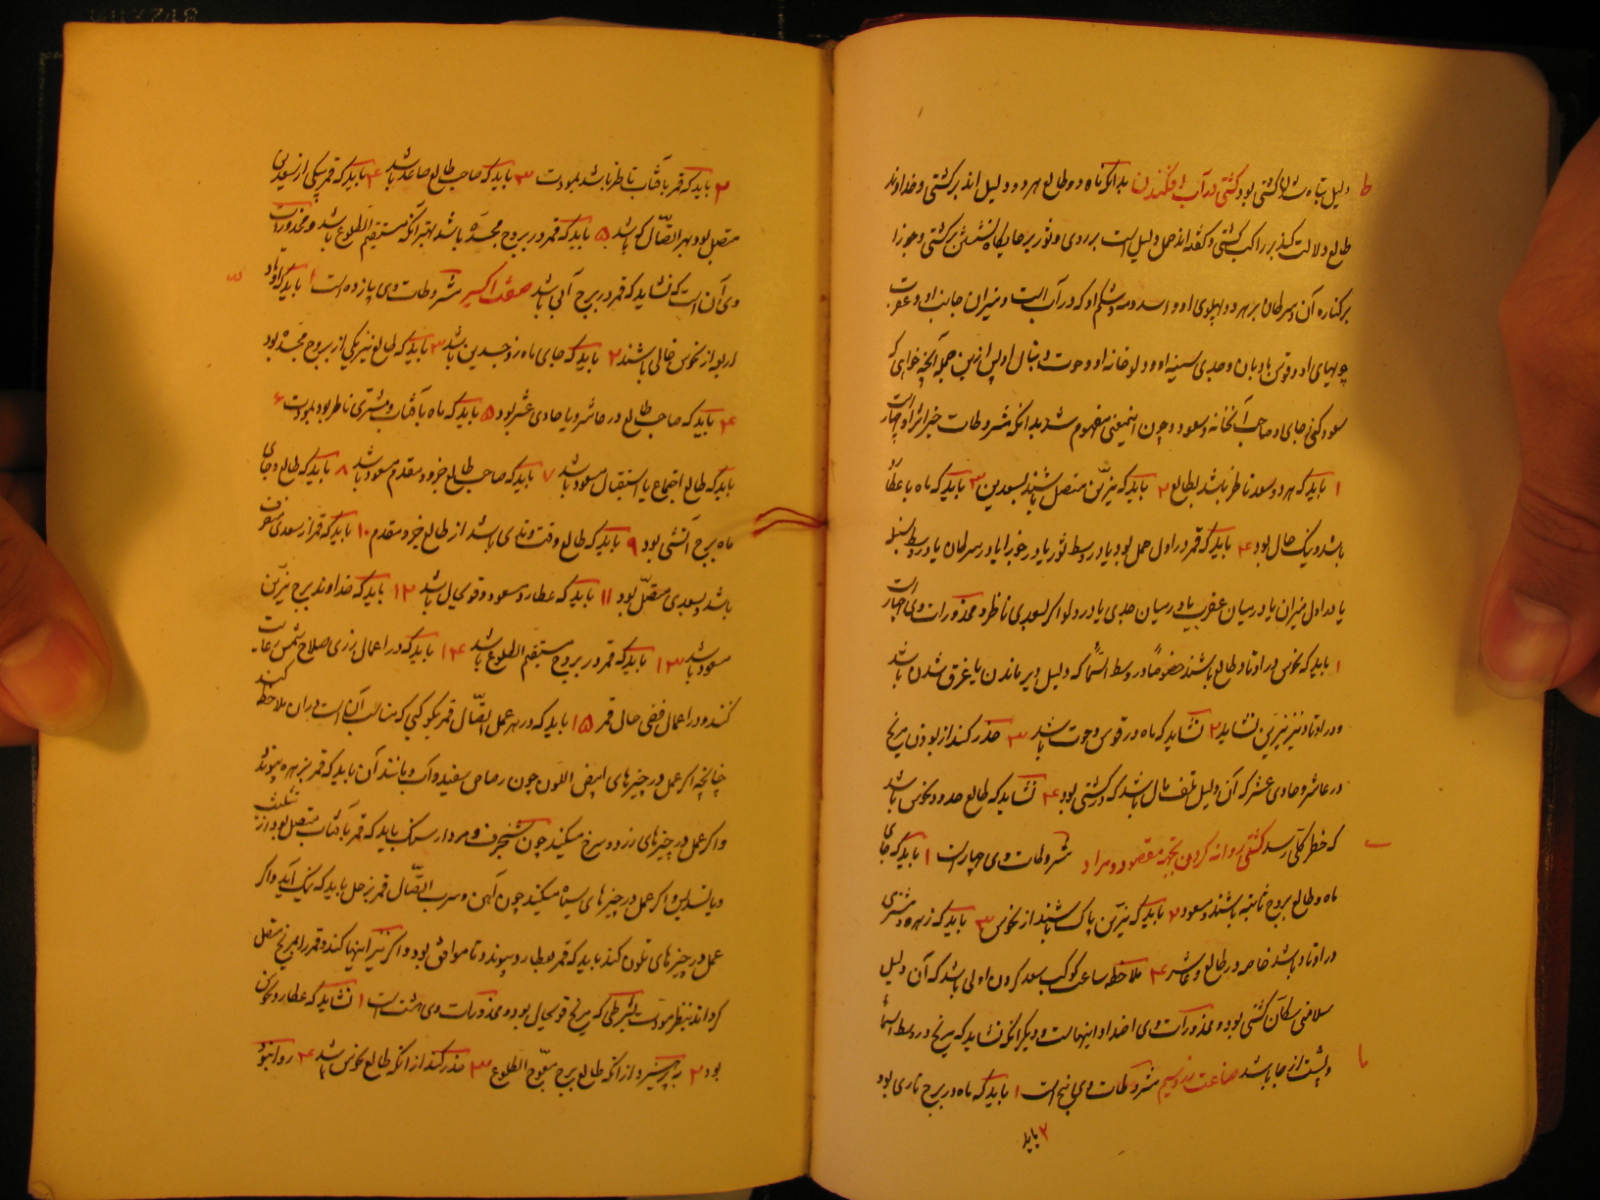 ط دلیل تباه شدن کشتی بود کشتی در آب افکندن بدانکه ماه و طالع هر دو دلیل اند بر کشتی و خداوند
طالع دلالت کند بر راکب کشتی و گفته اند حمل دلیل است بر روی و ثور بر جایگاه نشستن بر کشتی و جوزا
بر کناره آن و سرطان بر هر دو پهلوی او و اسد و سنبله شکم او که در آب است و میزان جانب او و عقرب
چوبهای او و قوس بادبان و جدی سینه او و دلو خانه او و حوت دنبال او پس ازین جمله آنچه خواهی که
مسعود کنی جای او و صاحب آنخانه مسعود و چون اینمعنی مفهوم شد بدانکه مشروطات خیر اثر او چهار است
۱ باید که هر دو سعد ناظر باشند بطالع ۲ باید که نیّرین متصل باشند بسعدین ۳ باید که ماه با عطارد
باشد و نیک حال بود ۴ باید که قمر در اول حمل بود یا در وسط ثور یا در جوزا یا در سرطان یا در وسط سنبله
یا در اول میزان یا در میان عقرب یا در میان جدی یا در دلو اگر بسعدی ناظر و محذورات وی چهار است
۱ باید که نحوس در اوتاد طالع نباشند خصوصاً در وسط السّماء که دلیل دیر ماندن یا غرق شدن باشد
و در اوتاد نیز نیّرین نشاید ۲ نشاید که ماه در قوس و حوت باشد ۳ حذر کند از بودن مریخ
در عاشر و حادی عشر که آن دلیل تلف مال باشد که در کشتی بود ۴ نشاید که طالع حدود نحوس باشد
که خطر کلّی رسد کشتی روانه کردن بجهت مقصود و مراد مشروطات وی چهار است ۱ باید که جای
ماه و طالع بروج ثابته باشند و مسعود ۲ باید که نیّرین پاک باشند از نحوس ۳ باید که زهره و مشتری
در اوتاد باشد خاصه در طالع و عاشر ۴ ملاحظه ساعت کوکب سعد کردن اولی باشد که آن دلیل
سلامتی سکّان کشتی بود و محذورات وی اضداد اینهاست و دیگر آنکه نشاید که مریخ در وسط السماء
و پشت از جا باشد صناعت زر و سیم مشروطات وی پنج است ۱ باید که ماه در برج ناری بود
۲ باید
۲ باید که قمر بآفتاب ناظر باشد بمودت ۳ باید که صاحب طالع صاعد باشد ۴ باید که قمر بیکی از سعدین
متصل بود بهر اتصّال که باشد ۵ باید که قمر در بروج مجسّده باشد بهتر آنکه مستقیم الطلوع باشد و محذورات
وی آن است که نشاید که قمر در برج آبی باشد صفت اکسیر مشروطات وی پانزده است ۱ باید که اوتاد
اربعه از نحوس خالی باشند ۲ باید که جای ماه ذو جسدین باشد ۳ باید که طالع نیز یکی از بروج مجسّده بود
۴ باید که صاحب طالع در عاشر و یا حادی عشر بود ۵ باید که ماه بآفتاب و مشتری ناظر بود بمودت ۶
باید که طالع اجتماع یا استقبال مسعود باشد ۷ باید که صاحب طالع جزو مقدم مسعود باشد ۸ باید که طالع و جای
ماه برج آتشی بود ۹ باید که طالع وقت وتدی باشد از طالع جزو مقدم ۱۰ باید که قمر از سعدی منصرف
باشد و بسعدی متصلّ بود ۱۱ باید که عطارد مسعود و قوی حال باشد ۱۲ باید که خداوند برج نیّرین
مسعود باشد ۱۳ باید که قمر در بروج مستقیم الطلوع باشد ۱۴ باید که در اعمال زری صلاح شمس رعایت
کنند و در اعمال فضی حال قمر ۱۵ باید که در هر عمل اتصّال قمر بکوکبی که مناسب آنست در آن ملاحظه کنند
چنانچه اگر عمل در چیزهای ابیض اللون چون رصاص سفید و آب و مانند آن باید که قمر بزهره پیوندد
و اگر عمل در چیزهای زرد و سرخ میکنند چون شنجرف و مردار سنگ باید که قمر بآفتاب متصل بود از تثلیث
و یا تسدیس و اگر عمل در چیزهای سیاه میکنند چون آهن و سرب اتصّال قمر بزحل باید که نیک آید و اگر
عمل در چیزهای تلون کند باید که قمر بعطارد پیوندد تا موافق بود و اگر تدبیر اینها کند و قمر را بمریخ متصل
گرداند بنظر مودت بشرطی که مریخ قوی حال بود و محذورات وی هشت است ۱ نشاید که عطارد منحوس
بود ۲ بپرهیزد از آنکه طالع برج معوّج الطلوع ۳ حذر کند از آنکه طالع نحوس باشد ۴ روا نبود